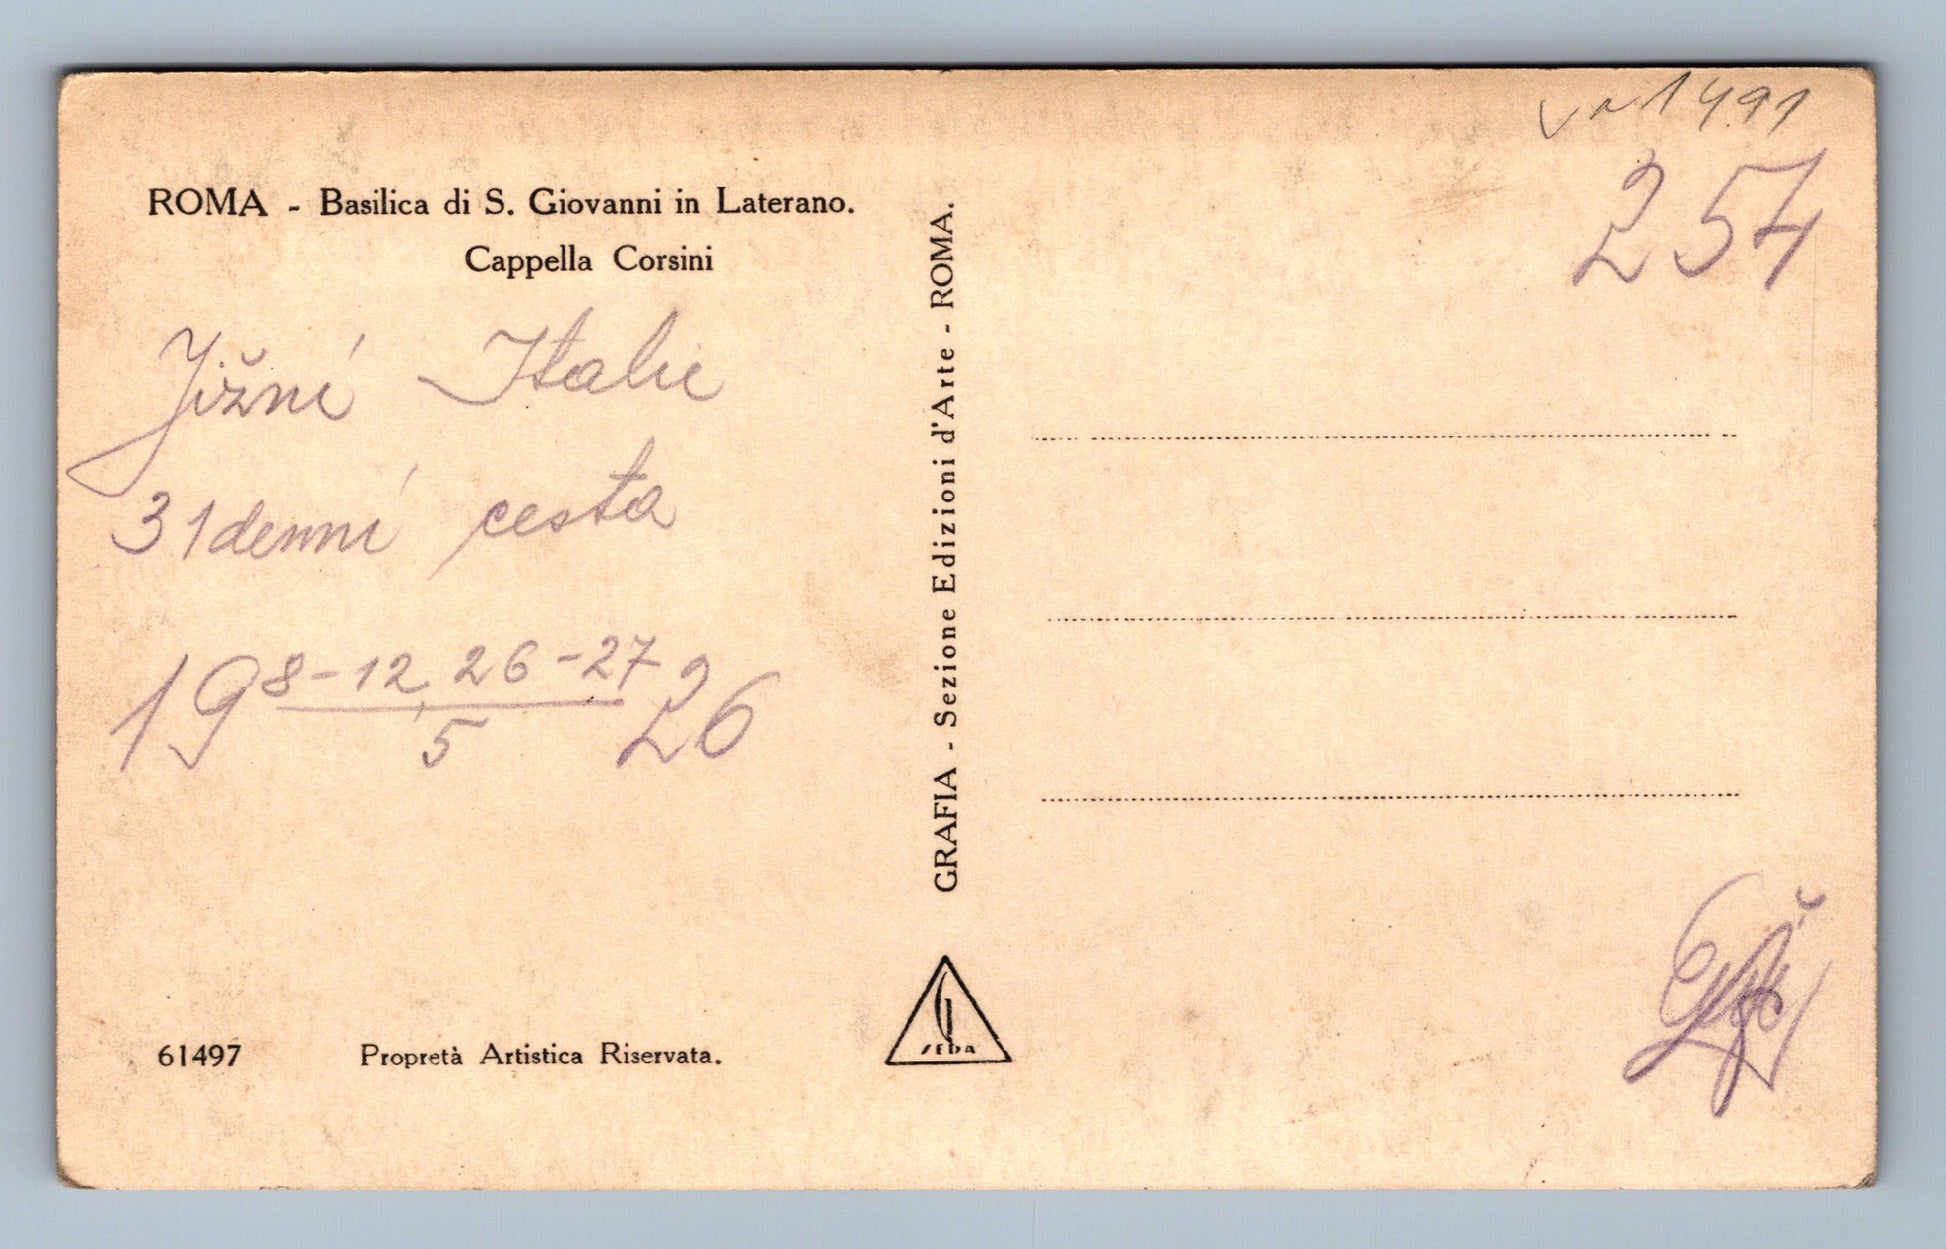 ROMA - Basilica di S. Giovanni in Laterano.
Cappella Corsini
Jižní Italie
31denní cesta
19 8-12, 26-27 26
5
61497 Propretà Artistica Riservata.
GRAFIA - Sezione Edizioni d'Arte - ROMA.
SEDA
1491
254